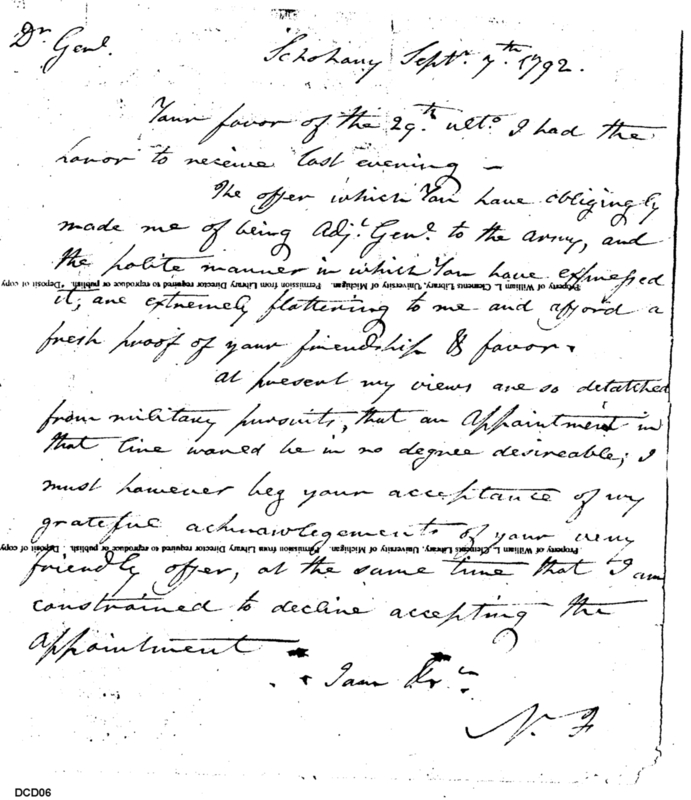 Dr. Genl.
Schohary Septr. 7th. 1792.
Your favor of the 29th. ulto. I had the
honor to receive last evening –
The offer which You have obligingly
made me of being Adjt. Genl. to the army, and
the polite manner in which You have expressed
Property of William L. Clements Library, University of Michigan. Permission from Library Director required to reproduce or publish. "Deposit copy
it, are extremely flattering to me and afford a
fresh proof of your friendship & favor.
at present my views are so detatched
from military pursuits, that an Appointment in
that line would be in no degree desireable; I
must however beg your acceptance of my
grateful acknowlegements of your very
Property of William L. Clements Library, University of Michigan. Permission from Library Director required to reproduce or publish. "Deposit copy
friendly offer, at the same time that I am
constrained to decline accepting the
appointment
I am
N. F
DCD06